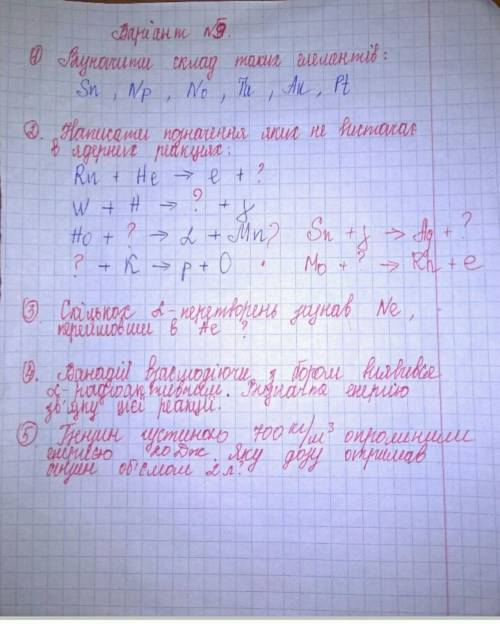 Варіант №9.
① Визначити склад таких елементів:
Sn, Np, No, Au, Pt
②. Написати позначення яких не вистачає
в ядерних реакціях:
Rn + He → e + ?
W + H → ? + γ
Ho + ? → α + Mn? Sn + γ → Ag + ?
? + K → p + O . Mo + ? → Rh + e
③ Скількох α-перетворень зазнав Ne,
перейшовши в He ?
④. Ванадій взаємодіючи з бором виявився
α-радіоактивним. Визначте енергію
зв'язку цієї реакції.
⑤ Бензин густиною 700 кг/м³ опромінили
енергією 20 Дж. Яку дозу отримав
бензин об'ємом 2 л?